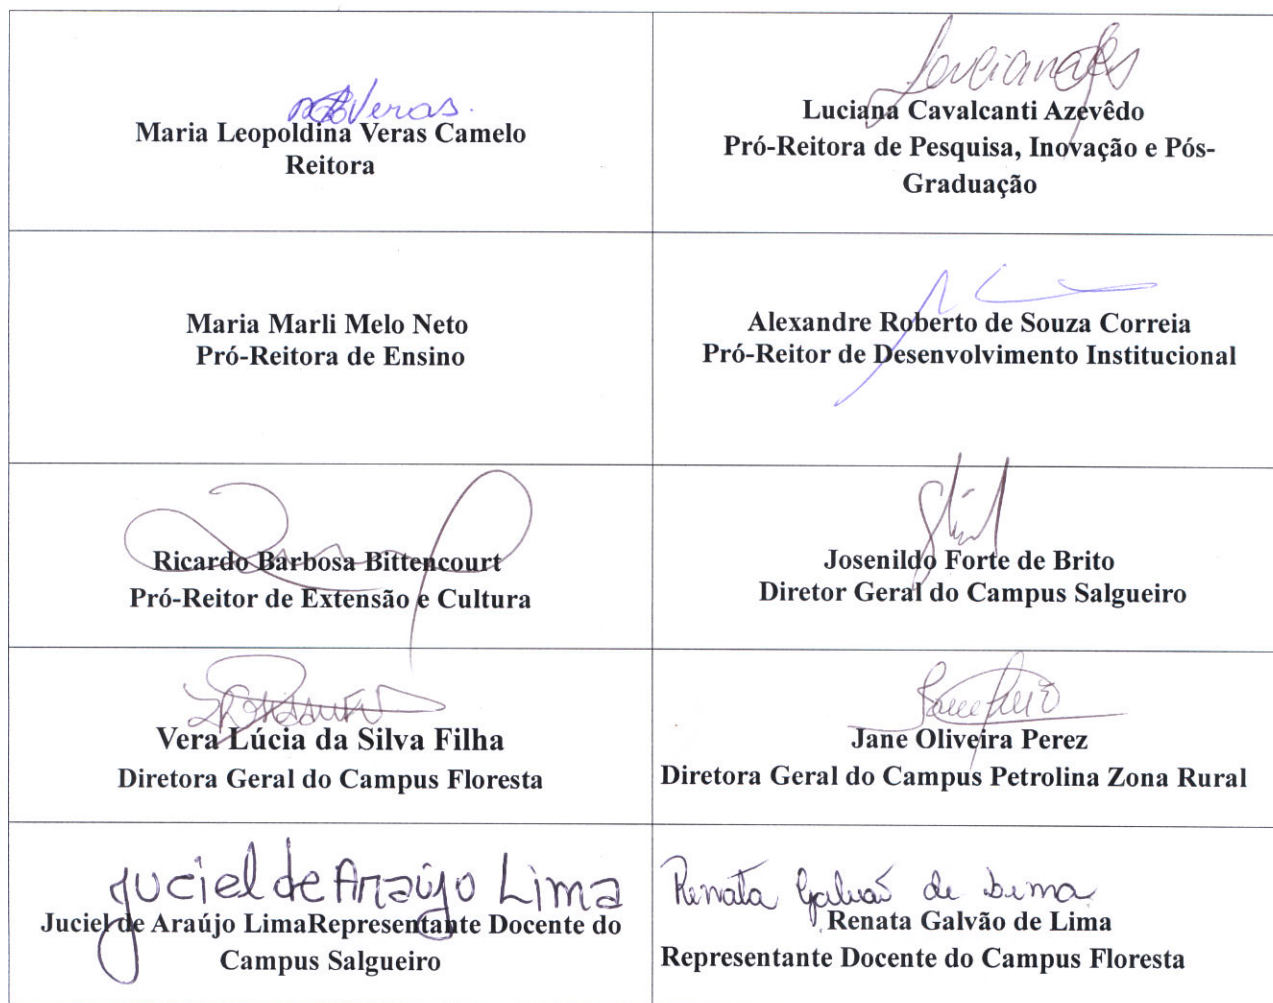 Veras.
Maria Leopoldina Veras Camelo
Reitora
Luciana
Luciana Cavalcanti Azevêdo
Pró-Reitora de Pesquisa, Inovação e Pós-
Graduação
Maria Marli Melo Neto
Pró-Reitora de Ensino
Alexandre Roberto de Souza Correia
Pró-Reitor de Desenvolvimento Institucional
Ricardo Barbosa Bittencourt
Pró-Reitor de Extensão e Cultura
Josenildo Forte de Brito
Diretor Geral do Campus Salgueiro
Vera Lúcia da Silva Filha
Diretora Geral do Campus Floresta
Jane Oliveira Perez
Diretora Geral do Campus Petrolina Zona Rural
Juciel de Araújo Lima
Juciel de Araújo LimaRepresentante Docente do
Campus Salgueiro
Renata Galvão de Lima
Renata Galvão de Lima
Representante Docente do Campus Floresta